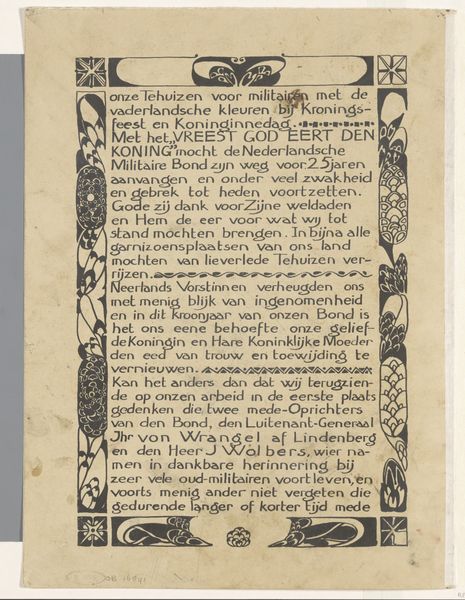 onze Tehuizen voor militairen met de
vaderlandsche kleuren bij Kronings-
feest en Koninginnedag.
Met het „VREEST GOD EERT DEN
KONING" mocht de Nederlandsche
Militaire Bond zijn weg voor 25 jaren
aanvangen en onder veel zwakheid
en gebrek tot heden voortzetten.
Gode zij dank voor Zijne weldaden
en Hem de eer voor wat wij tot
stand mochten brengen. In bijna alle
garnizoensplaatsen van ons land
mochten van lieverlede Tehuizen ver-
rijzen.
Neerlands Vorstinnen verheugden ons
met menig blijk van ingenomenheid
en in dit kroonjaar van onzen Bond is
het ons eene behoefte onze gelief-
de Koningin en Hare Koninklijke Moeder
den eed van trouw en toewijding te
vernieuwen.
Kan het anders dan dat wij terugzien-
de op onzen arbeid in de eerste plaats
gedenken die twee mede-Oprichters
van den Bond, den Luitenant-Generaal
Jhr von Wrangel af Lindenberg
en den Heer J Wolbers, wier na-
men in dankbare herinnering bij
zeer vele oud-militairen voortleven, en
voorts menig ander niet vergeten die
gedurende langer of korter tijd mede